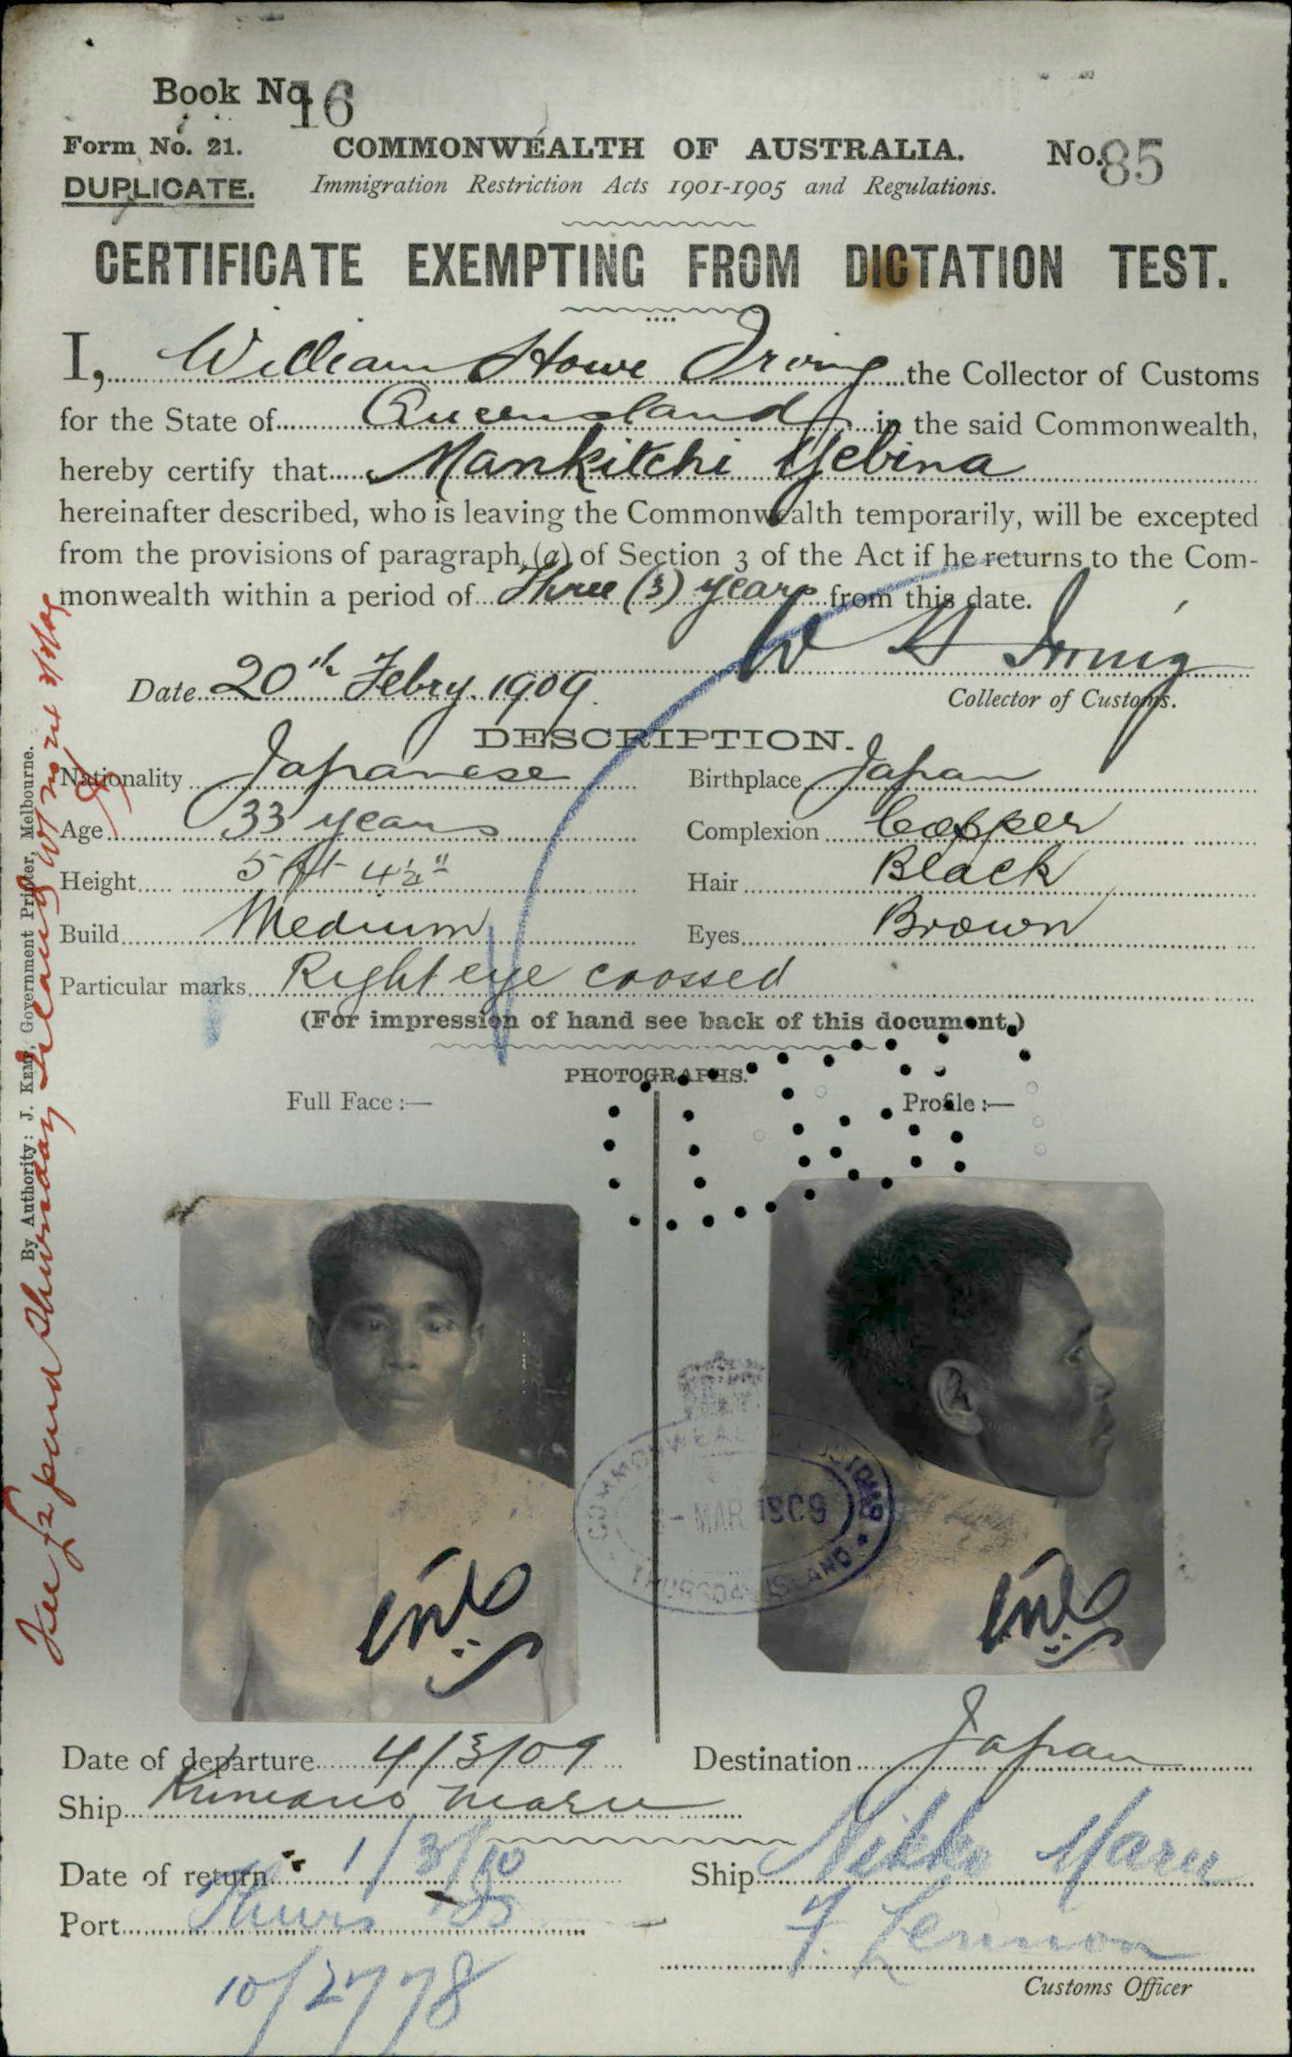 Book No. 16
Form No. 21.
COMMONWEALTH OF AUSTRALIA.
No. 85
DUPLICATE.
Immigration Restriction Acts 1901-1905 and Regulations.
CERTIFICATE EXEMPTING FROM DICTATION TEST.
I, William Howe Irving the Collector of Customs
for the State of Queensland in the said Commonwealth,
hereby certify that Mankitchi Yebina
hereinafter described, who is leaving the Commonwealth temporarily, will be excepted
from the provisions of paragraph (a) of Section 3 of the Act if he returns to the Com-
monwealth within a period of Three (3) years from this date.
W H Irving
Date 20th Febry. 1909.
Collector of Customs.
DESCRIPTION.
Nationality Japanese
Birthplace Japan
Age 33 years
Complexion Copper
Height 5 ft 4½"
Hair Black
Build Medium
Eyes Brown
Particular marks Right eye crossed
(For impression of hand see back of this document.)
PHOTOGRAPHS.
Full Face :—
Profile :—
COMMONWEALTH
MAR 1909
THURSDAY ISLAND
Date of departure 4/3/09
Destination Japan
Ship Kumano Maru
Date of return 1/3/10
Ship Nikko Maru
Port Thurs Is
F. Lennon
Customs Officer
10/2778
By Authority: J. KEMP, Government Printer, Melbourne.
Fee £2 paid Thursday Island